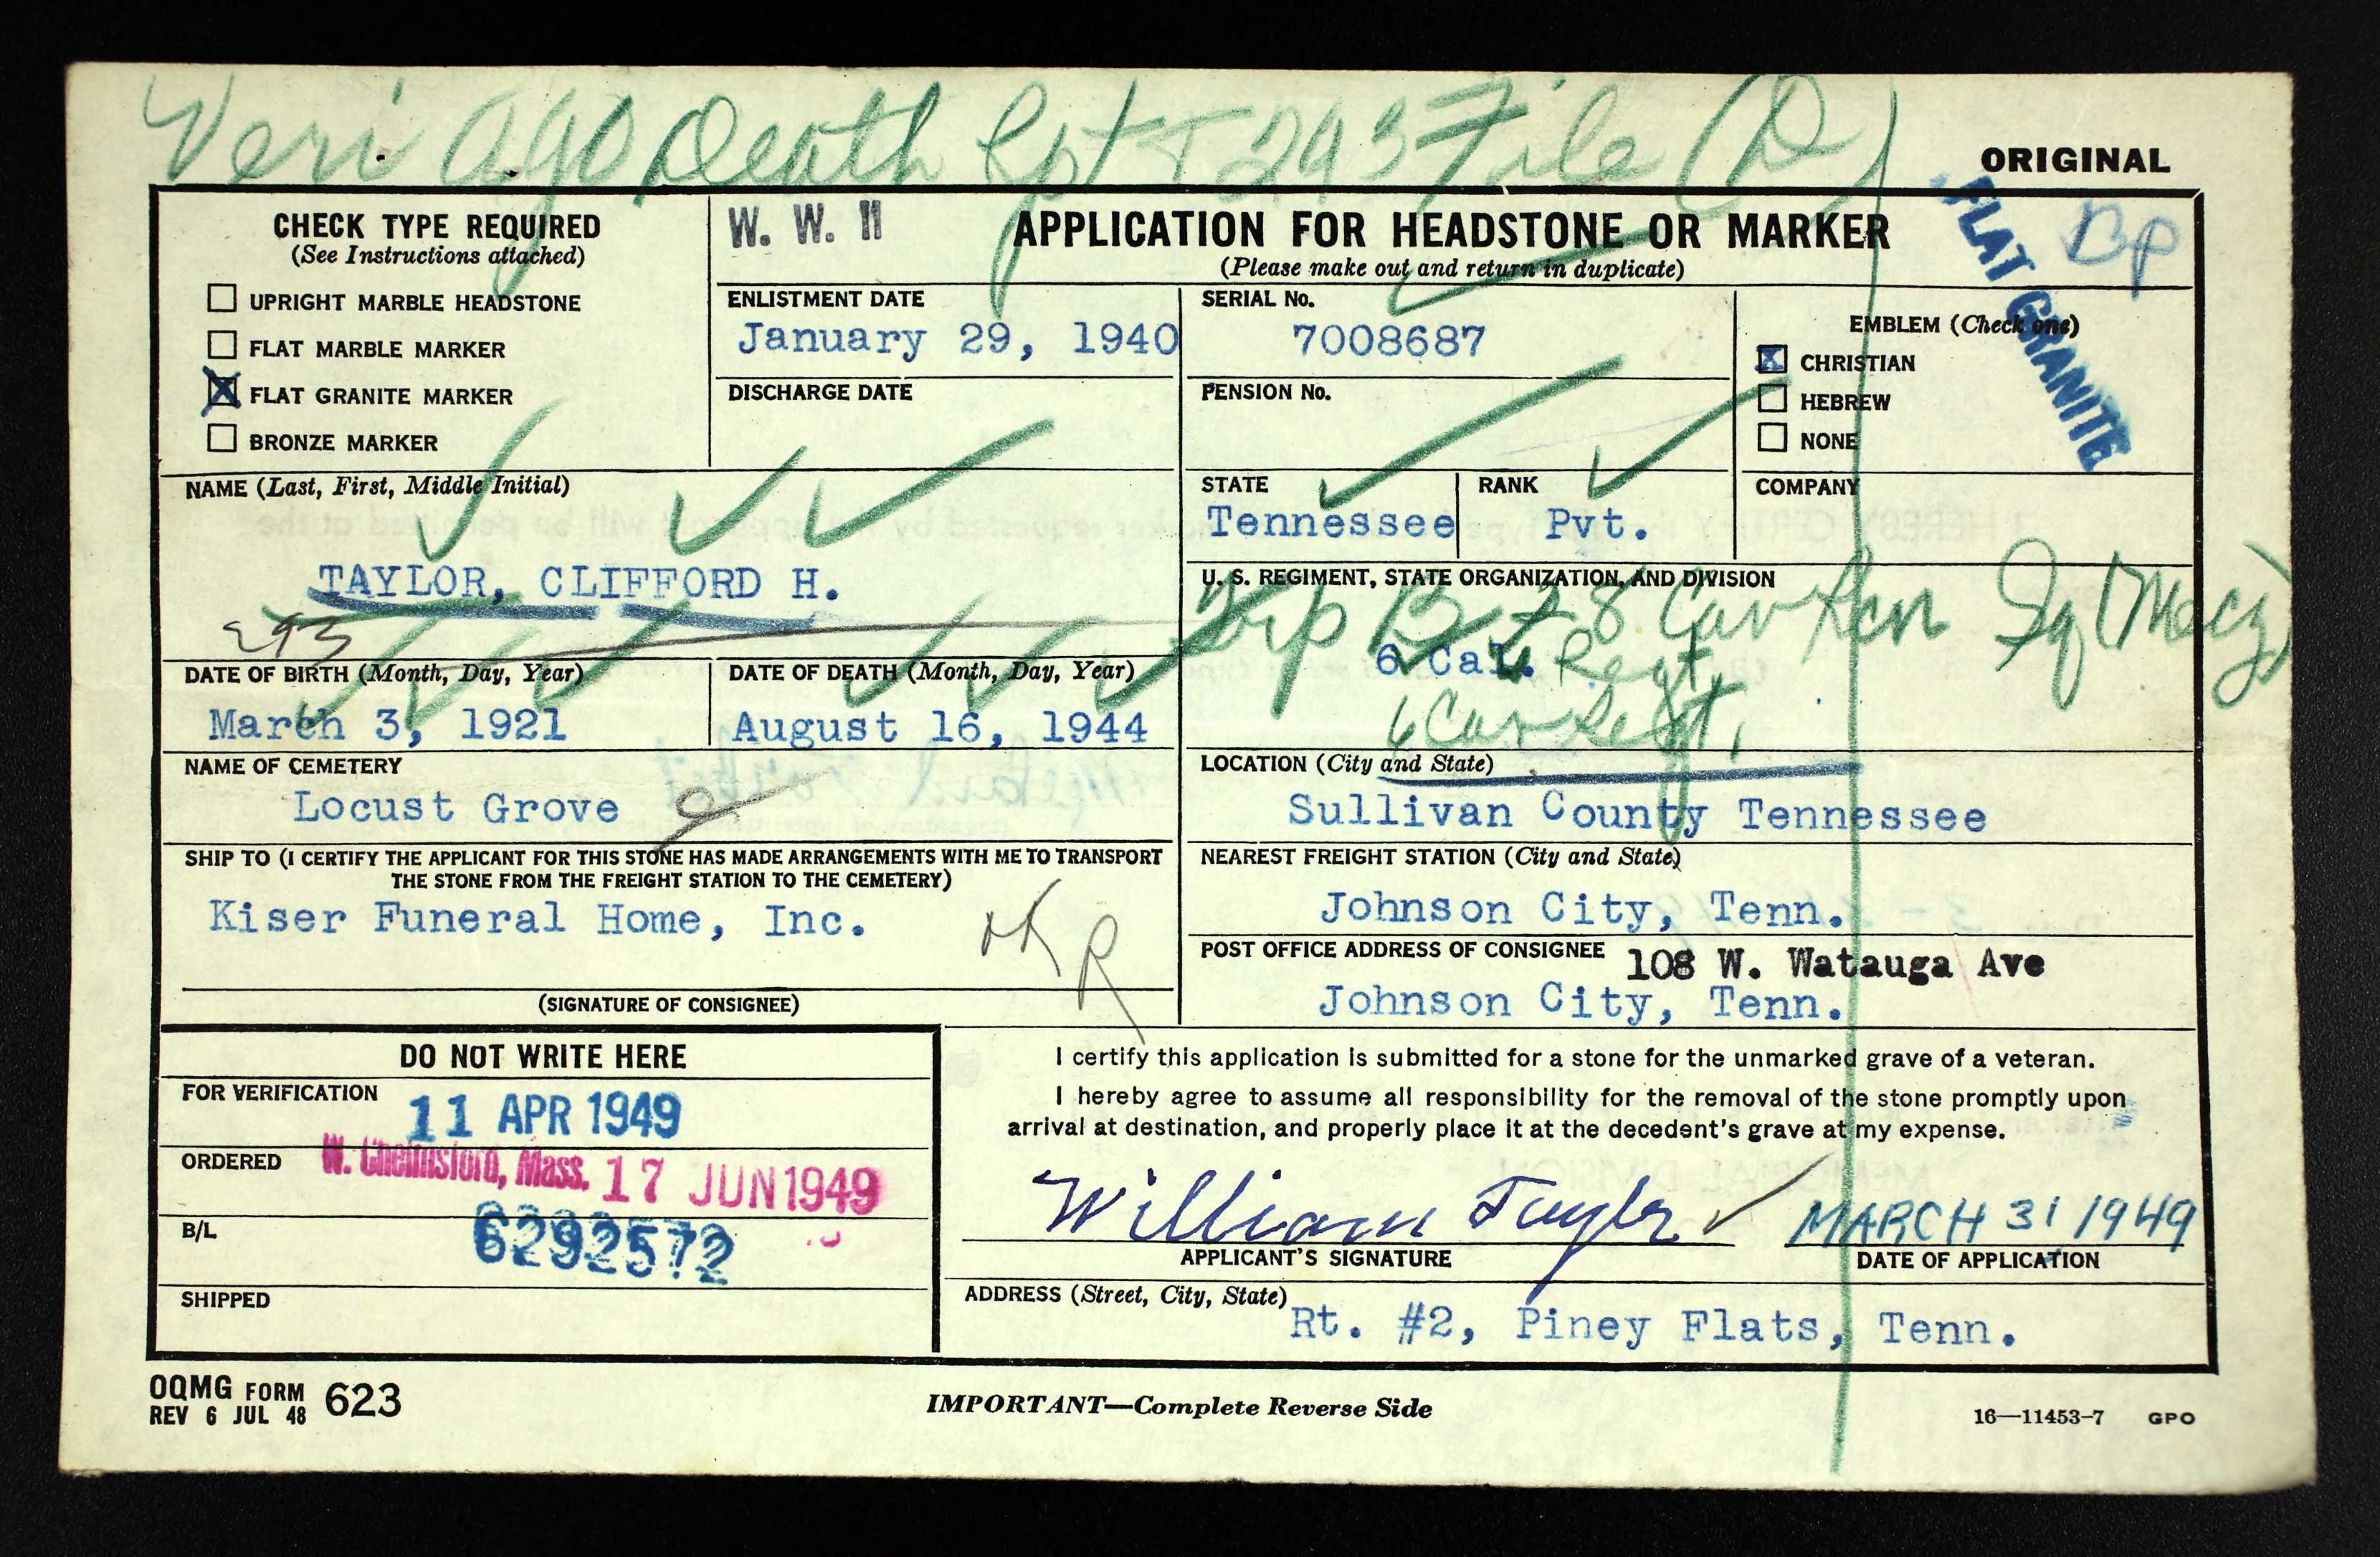 Veri AGO Death Rpt T 293 File (D)
ORIGINAL
CHECK TYPE REQUIRED
(See Instructions attached)
UPRIGHT MARBLE HEADSTONE
FLAT MARBLE MARKER
X FLAT GRANITE MARKER
BRONZE MARKER
W. W. II
APPLICATION FOR HEADSTONE OR MARKER
(Please make out and return in duplicate)
FLAT GRANITE
ENLISTMENT DATE
January 29, 1940
SERIAL No.
7008687
DISCHARGE DATE
PENSION No.
EMBLEM (Check one)
X CHRISTIAN
HEBREW
NONE
NAME (Last, First, Middle Initial)
TAYLOR, CLIFFORD H.
293
STATE
Tennessee
RANK
Pvt.
COMPANY
U. S. REGIMENT, STATE ORGANIZATION, AND DIVISION
Trp B 28 Cav Rcn Sq (Mecz)
6 Cal. Regt,
6 Cav Regt,
DATE OF BIRTH (Month, Day, Year)
March 3, 1921
DATE OF DEATH (Month, Day, Year)
August 16, 1944
NAME OF CEMETERY
Locust Grove
LOCATION (City and State)
Sullivan County Tennessee
SHIP TO (I CERTIFY THE APPLICANT FOR THIS STONE HAS MADE ARRANGEMENTS WITH ME TO TRANSPORT
THE STONE FROM THE FREIGHT STATION TO THE CEMETERY)
Kiser Funeral Home, Inc.
(SIGNATURE OF CONSIGNEE)
NEAREST FREIGHT STATION (City and State)
Johnson City, Tenn.
POST OFFICE ADDRESS OF CONSIGNEE 108 W. Watauga Ave
Johnson City, Tenn.
DO NOT WRITE HERE
FOR VERIFICATION
11 APR 1949
ORDERED
W. Chelmsford, Mass. 17 JUN 1949
B/L
6292572
SHIPPED
I certify this application is submitted for a stone for the unmarked grave of a veteran.
I hereby agree to assume all responsibility for the removal of the stone promptly upon
arrival at destination, and properly place it at the decedent's grave at my expense.
William Taylor MARCH 31 1949
APPLICANT'S SIGNATURE
DATE OF APPLICATION
ADDRESS (Street, City, State)
Rt. #2, Piney Flats, Tenn.
OQMG FORM 623
REV 6 JUL 48
IMPORTANT—Complete Reverse Side
16—11453-7 GPO